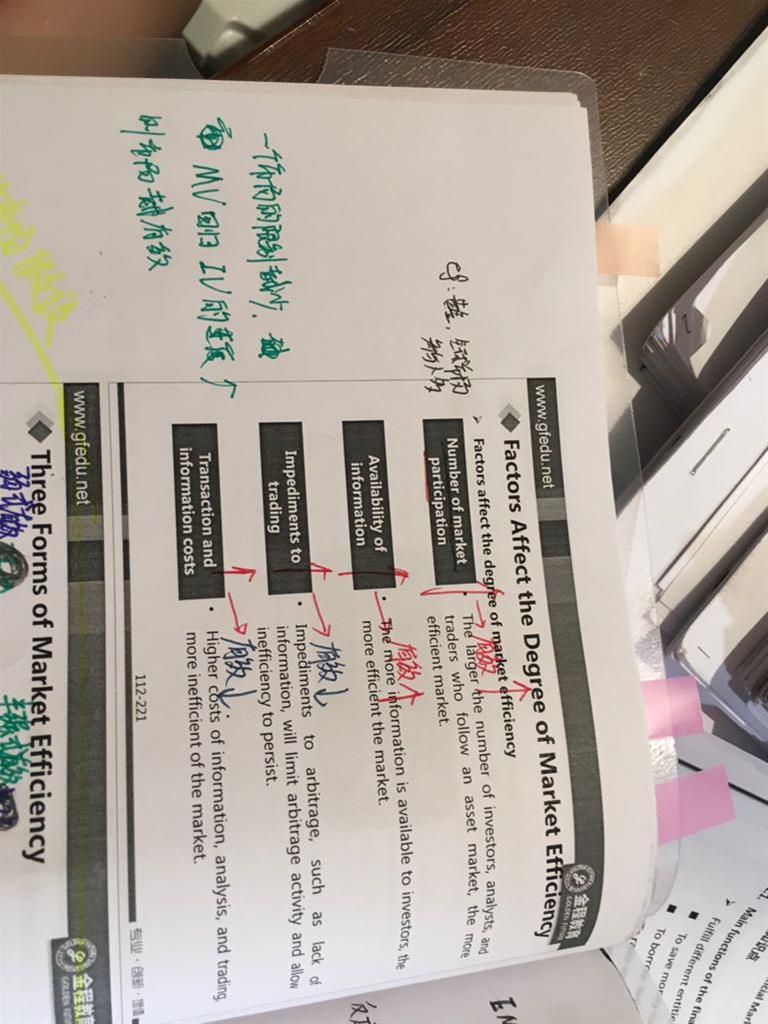 www.gfedu.net
金程教育
GOLDEN FUTURE
Factors Affect the Degree of Market Efficiency
Factors affect the degree of market efficiency
Number of market
participation
The larger the number of investors, analysts, and
traders who follow an asset market, the more
efficient market.
有效
Availability of
information
The more information is available to investors, the
more efficient the market.
有效↑
Impediments to
trading
Impediments to arbitrage, such as lack of
information, will limit arbitrage activity and allow
inefficiency to persist.
有效↓
Transaction and
information costs
Higher costs of information, analysis, and trading,
more inefficient of the market.
有效↓
112-221
专业·创新·增值
一个市场的限制越少,
MV 回归 IV 的速度↑
则市场越有效
www.gfedu.net
金程教育
GOLDEN
Three Forms of Market Efficiency
Main functions of the
Fulfill different
To save